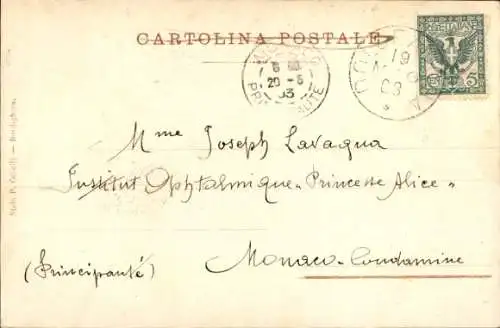 CARTOLINA POSTALE
POSTE ITALIANE
5
19
03
20-5
03
Mme Joseph Lavagna
Institut Ophtalmique "Princesse Alice"
(Principauté)
Monaco-Condamine